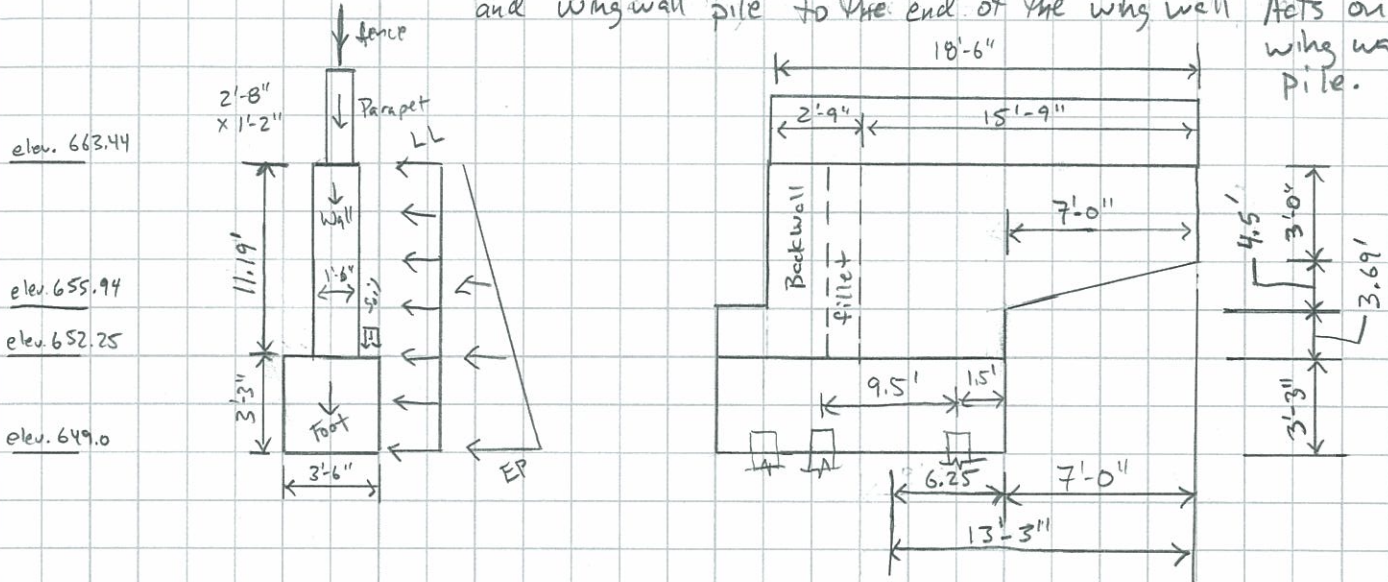 and wingwall pile to the end of the wing wall Acts on
wing wa
Pile.
fence
2'-8"
x 1'-2"
Parapet
LL
18'-6"
2'-9"
15'-9"
elev. 663.44
Wall
11.19'
1'-6"
elev. 655.94
elev. 652.25
3'-3"
Foot
elev. 649.0
3'-6"
EP
Backwall
fillet
7'-0"
4.5'
3'-0"
3.69'
9.5'
1.5'
3'-3"
6.25
7'-0"
13'-3"